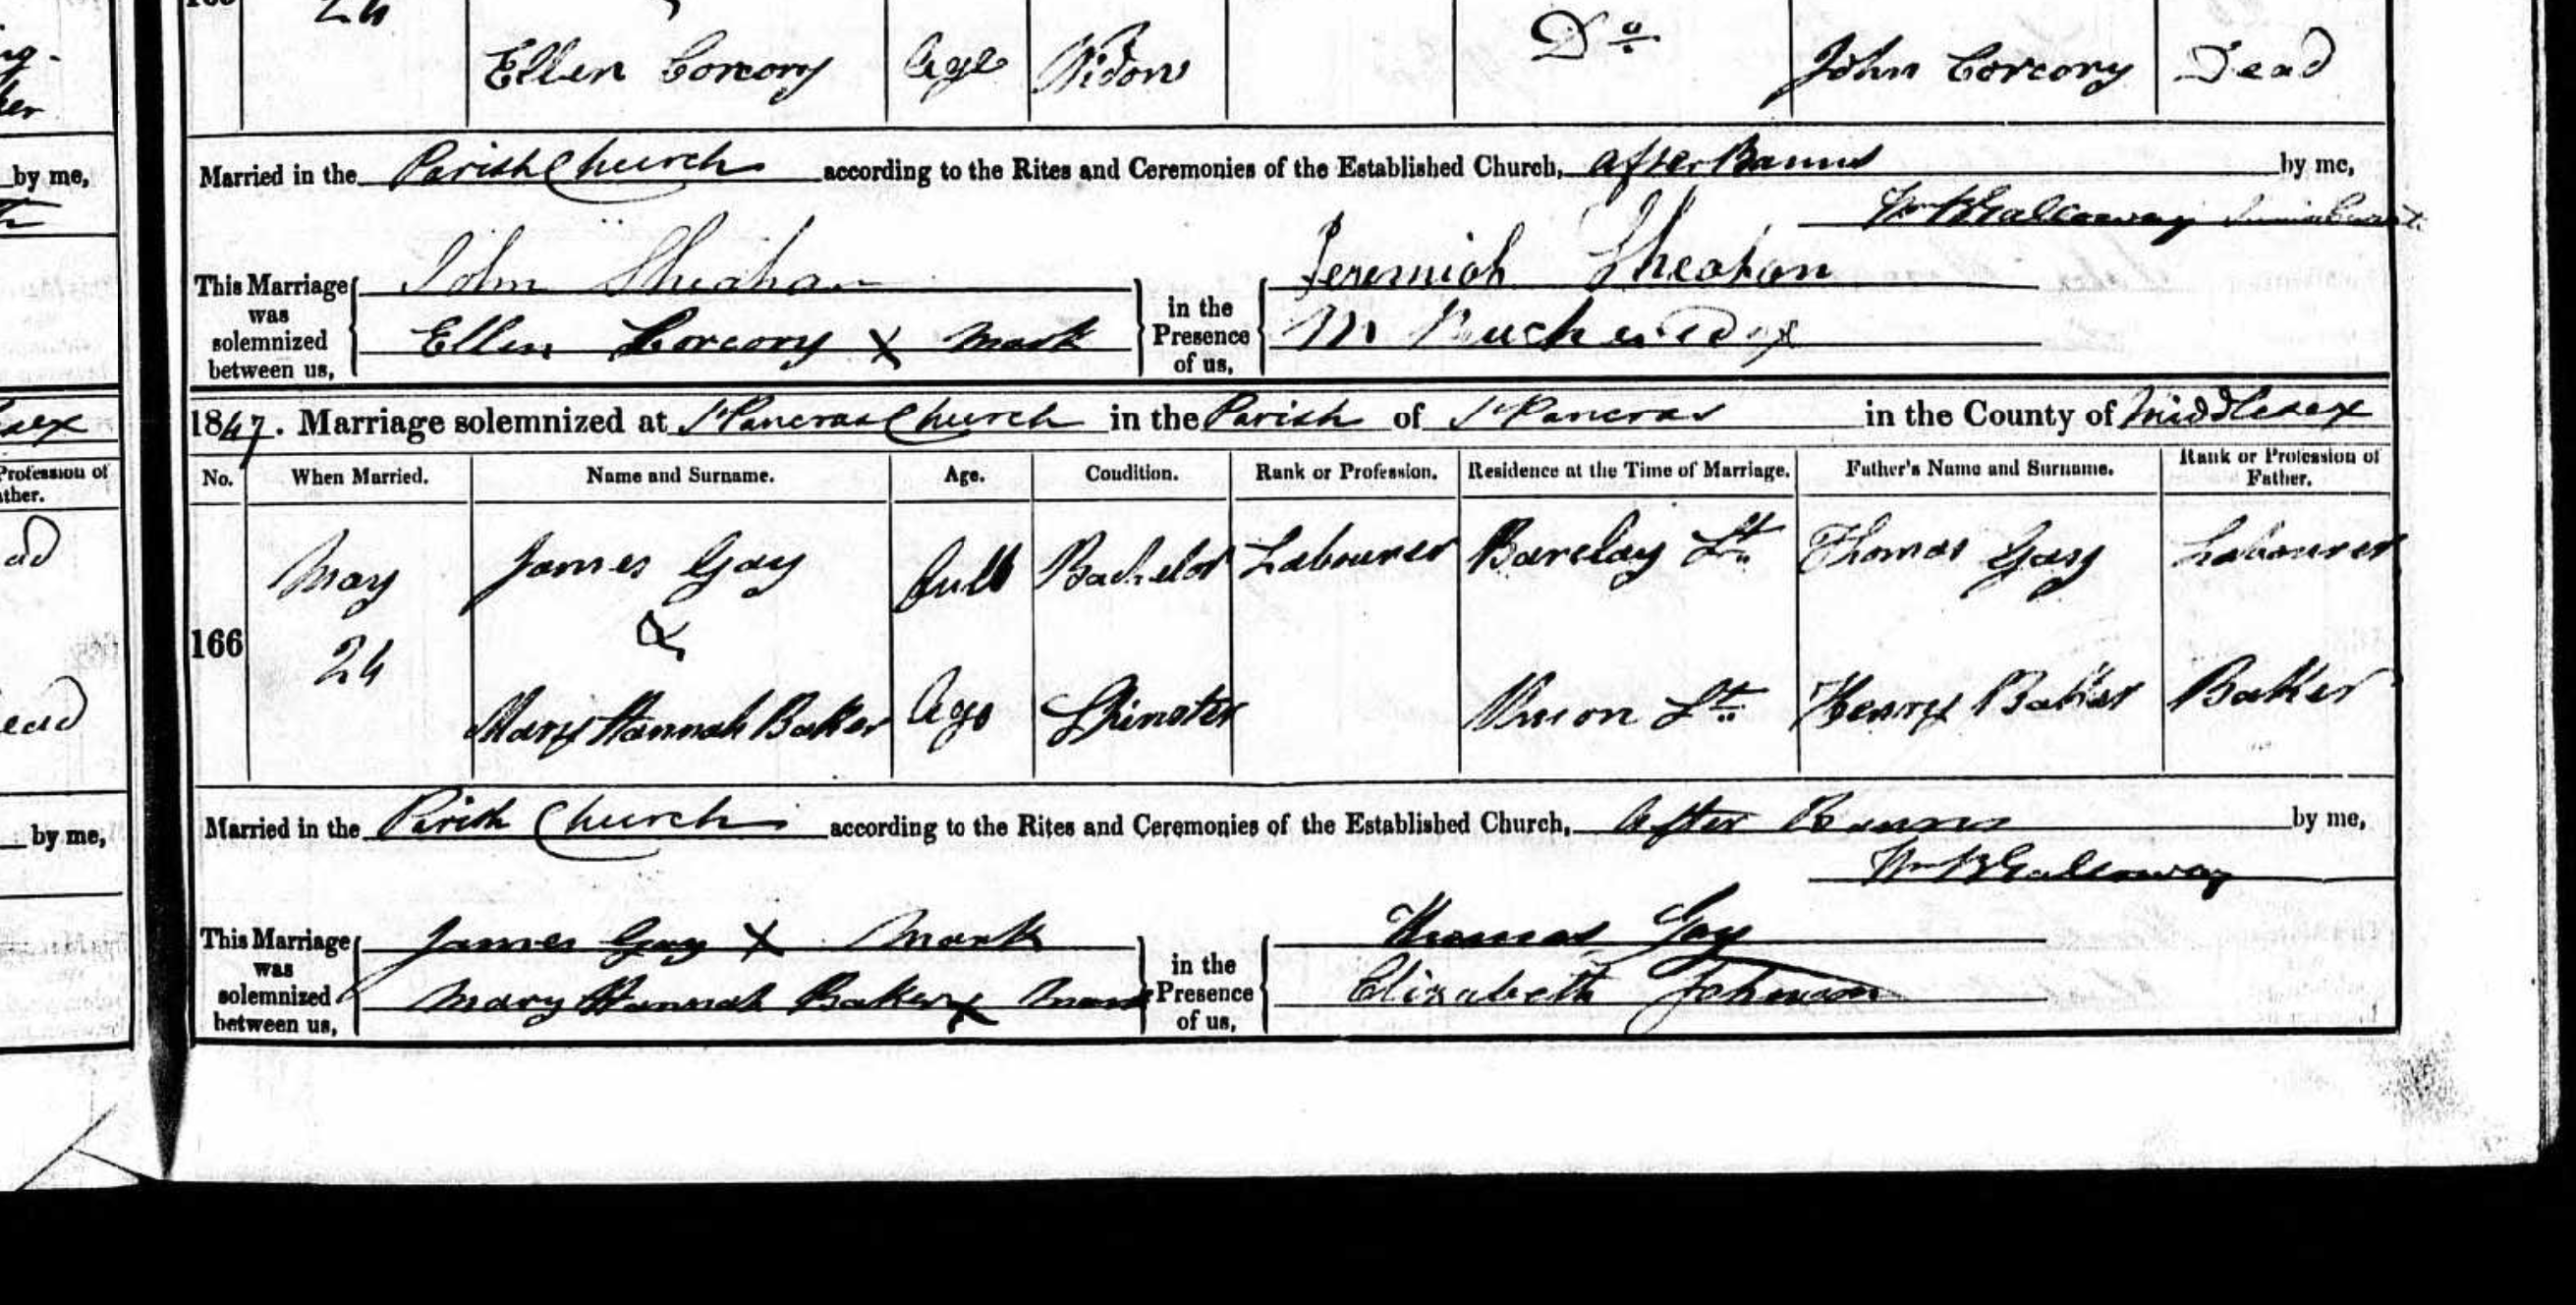 24
Ellen Corcory Age Widow Do John Corcory Dead
Married in the Parish Church according to the Rites and Ceremonies of the Established Church, after Banns by me,
Wm B Galloway
This Marriage was solemnized between us,
John Sheahan
Ellen Corcory X Mark
in the Presence of us,
Jeremiah Sheahan
M
1847. Marriage solemnized at St Pancras Church in the Parish of St Pancras in the County of Middlesex
No. When Married. Name and Surname. Age. Condition. Rank or Profession. Residence at the Time of Marriage. Father's Name and Surname. Rank or Profession of Father.
166 May 24
James Gay full Bachelor Labourer Barclay St. Thomas Gay Labourer
&
Mary Hannah Baker Age Spinster Union St. Henry Baker Baker
Married in the Parish Church according to the Rites and Ceremonies of the Established Church, After Banns by me,
Wm B Galloway
This Marriage was solemnized between us,
James Gay X Mark
Mary Hannah Baker X Mark
in the Presence of us,
Thomas Gay
Elizabeth Johnson
by me,
Profession of
ther.
ad
ead
by me,